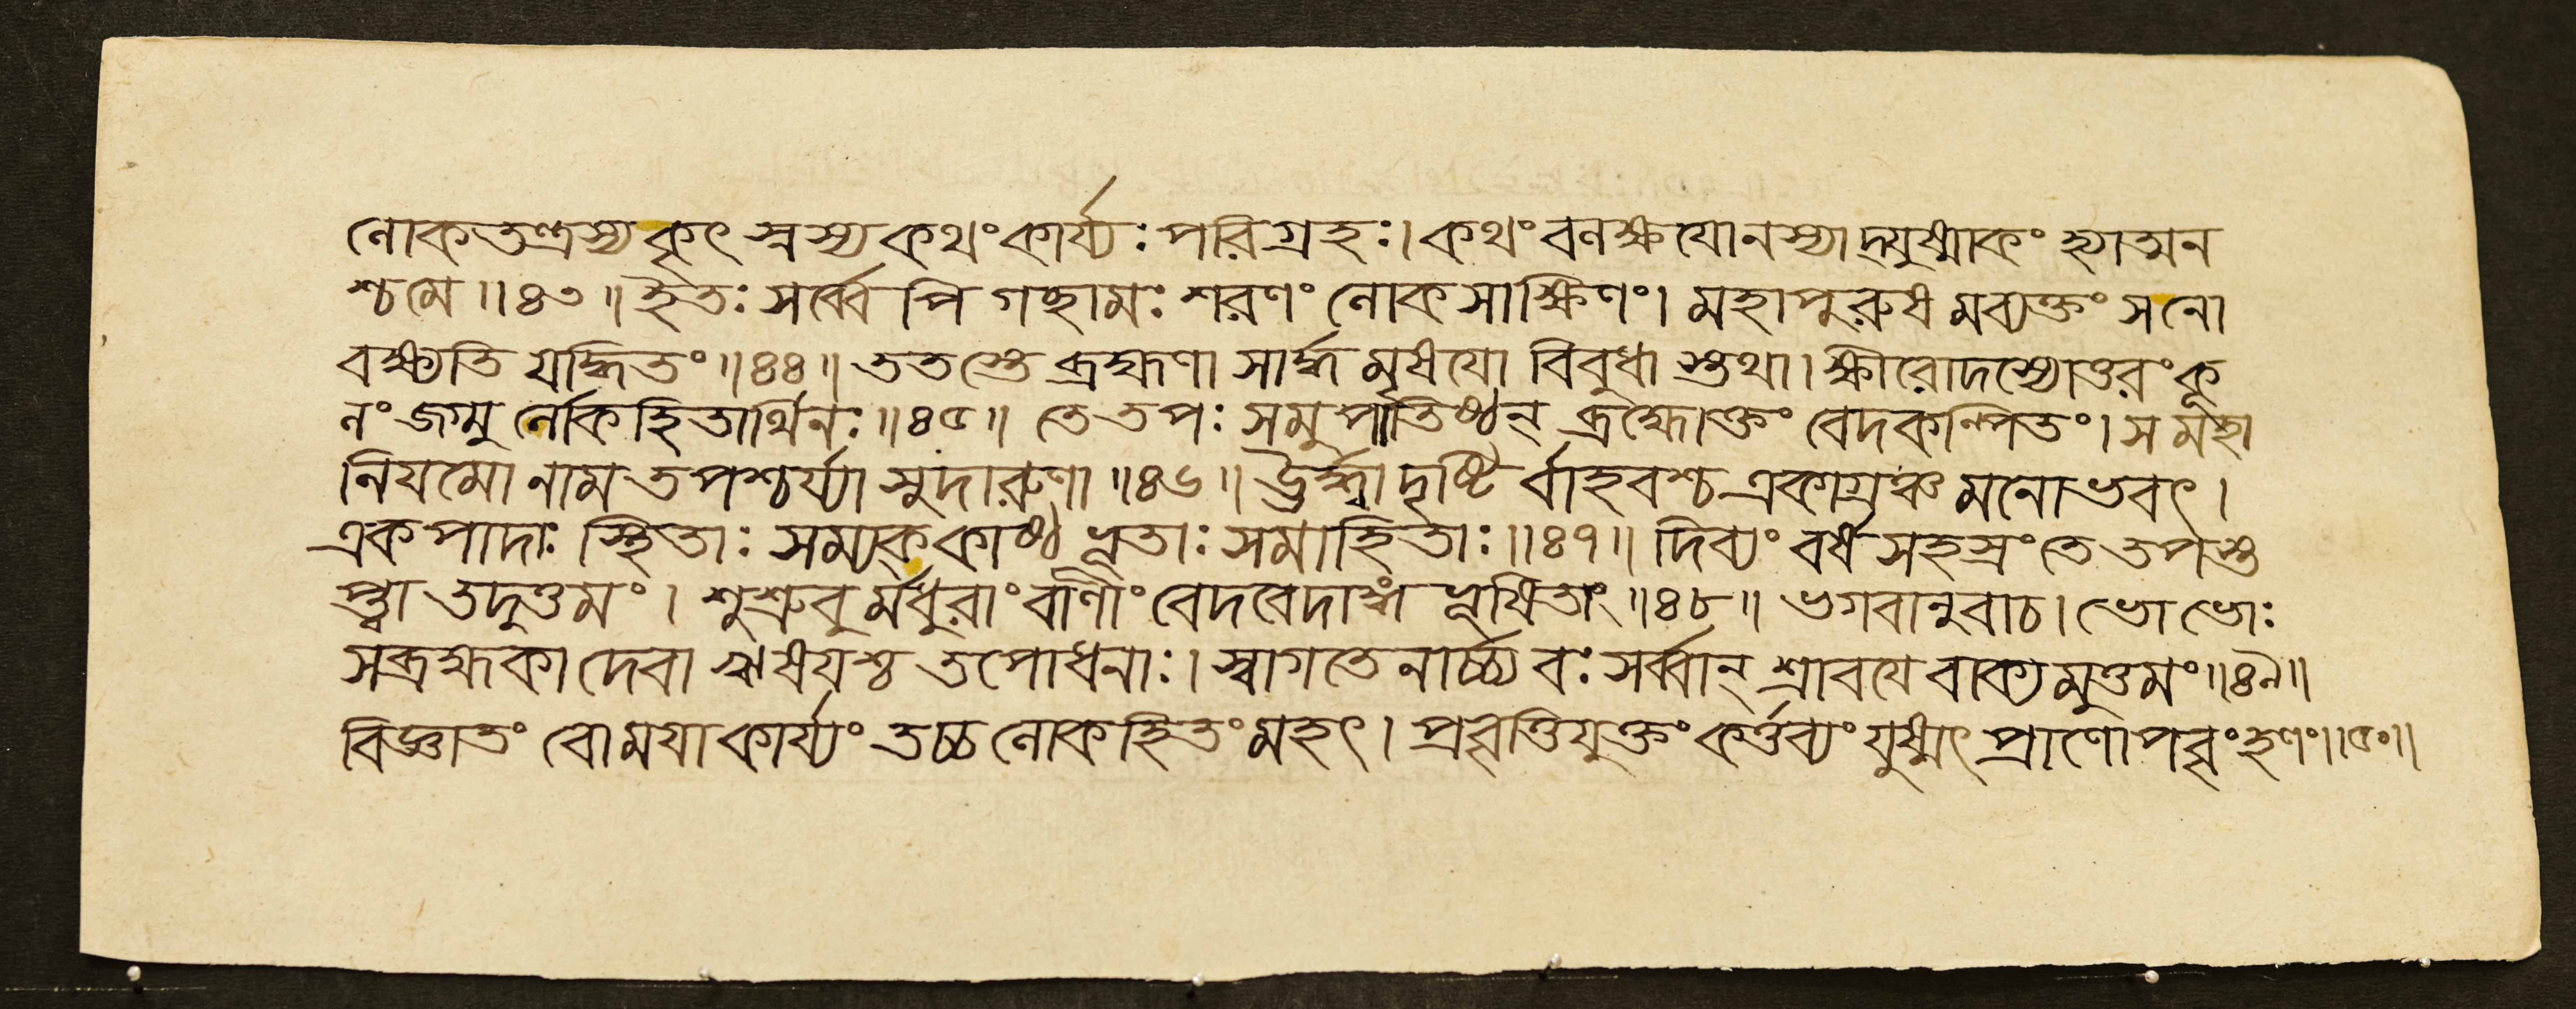 লোকতন্ত্রস্য কৃৎস্নস্য কথং কার্য্যঃ পরিগ্রহঃ। কথং বলক্ষযো নস্যাদ্যুষ্মাকং হ্যাত্মন
শ্চমে॥৪৩॥ ইতঃ সর্ব্বেপি গচ্ছামঃ শরণং লোকসাক্ষিণং। মহাপুরুষমব্যক্তং সনো
বক্ষ্যতি যদ্ধিতং॥৪৪॥ ততস্তে ব্রহ্মণা সার্দ্ধমৃষযো বিবুধাস্তথা। ক্ষীরোদস্যোত্তরং কূ
লং জগ্মুর্লোকহিতার্থিনঃ॥৪৫॥ তে তপঃ সমুপাতিষ্ঠন্ ব্রহ্মোক্তং বেদকল্পিতং। স মহা
নিযমো নাম তপশ্চর্য্যা সুদারুণা॥৪৬॥ ঊর্দ্ধ্বাদৃষ্টির্বাহবশ্চ একাগ্রঞ্চ মনোভবৎ।
একপাদাঃ স্থিতাঃ সম্যক্ কাষ্ঠভূতাঃ সমাহিতাঃ॥৪৭॥ দিব্যং বর্ষসহস্রং তে তপস্ত
প্ত্বা তদুত্তমং। শুশ্রুবুর্মধুরাং বাণীং বেদবেদাঙ্গভূষিতাং॥৪৮॥ ভগবানুবাচ। ভো ভোঃ
সব্রহ্মকা দেবা ঋষযশ্চ তপোধনাঃ। স্বাগতেনার্চ্চ্য বঃ সর্ব্বান্ শ্রাবযে বাক্যমুত্তমং॥৪৯॥
বিজ্ঞাতং বো মযা কার্য্যং তচ্চ লোকহিতং মহৎ। প্রবৃত্তিযুক্তং কর্ত্তব্যং যুষ্মৎ প্রাণোপবৃংহণং॥৫০॥